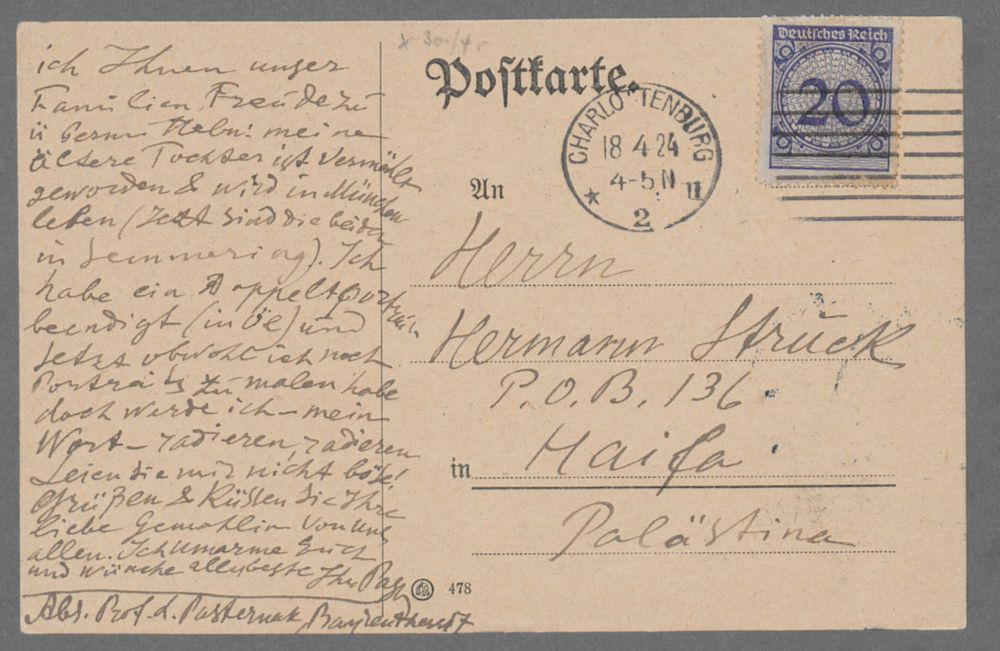 ich Ihnen unser
Familien Freude zu
meine
ältere Tochter ist vermählt
geworden & wird in München
leben (jetzt sind die beiden
in Semmering). Ich
habe ein Doppeltporträt
beendigt (in Öl) und
jetzt obwohl ich noch
Porträts zu malen habe
doch werde ich – mein
Wort – radieren, radieren
Seien Sie mir nicht böse!
Grüßen & Küssen Sie Ihre
liebe Gemahlin von uns
allen. Ich umarme Euch
und wünsche alles beste Ihr Past
Abs. Prof. L. Pasternak,
Postkarte.
Deutsches Reich
20
CHARLOTTENBURG
18 4.24
4-5.N
★ 2 11
An
Herrn
Hermann Struck
P.O.B. 136
in Haifa
Palästina
478